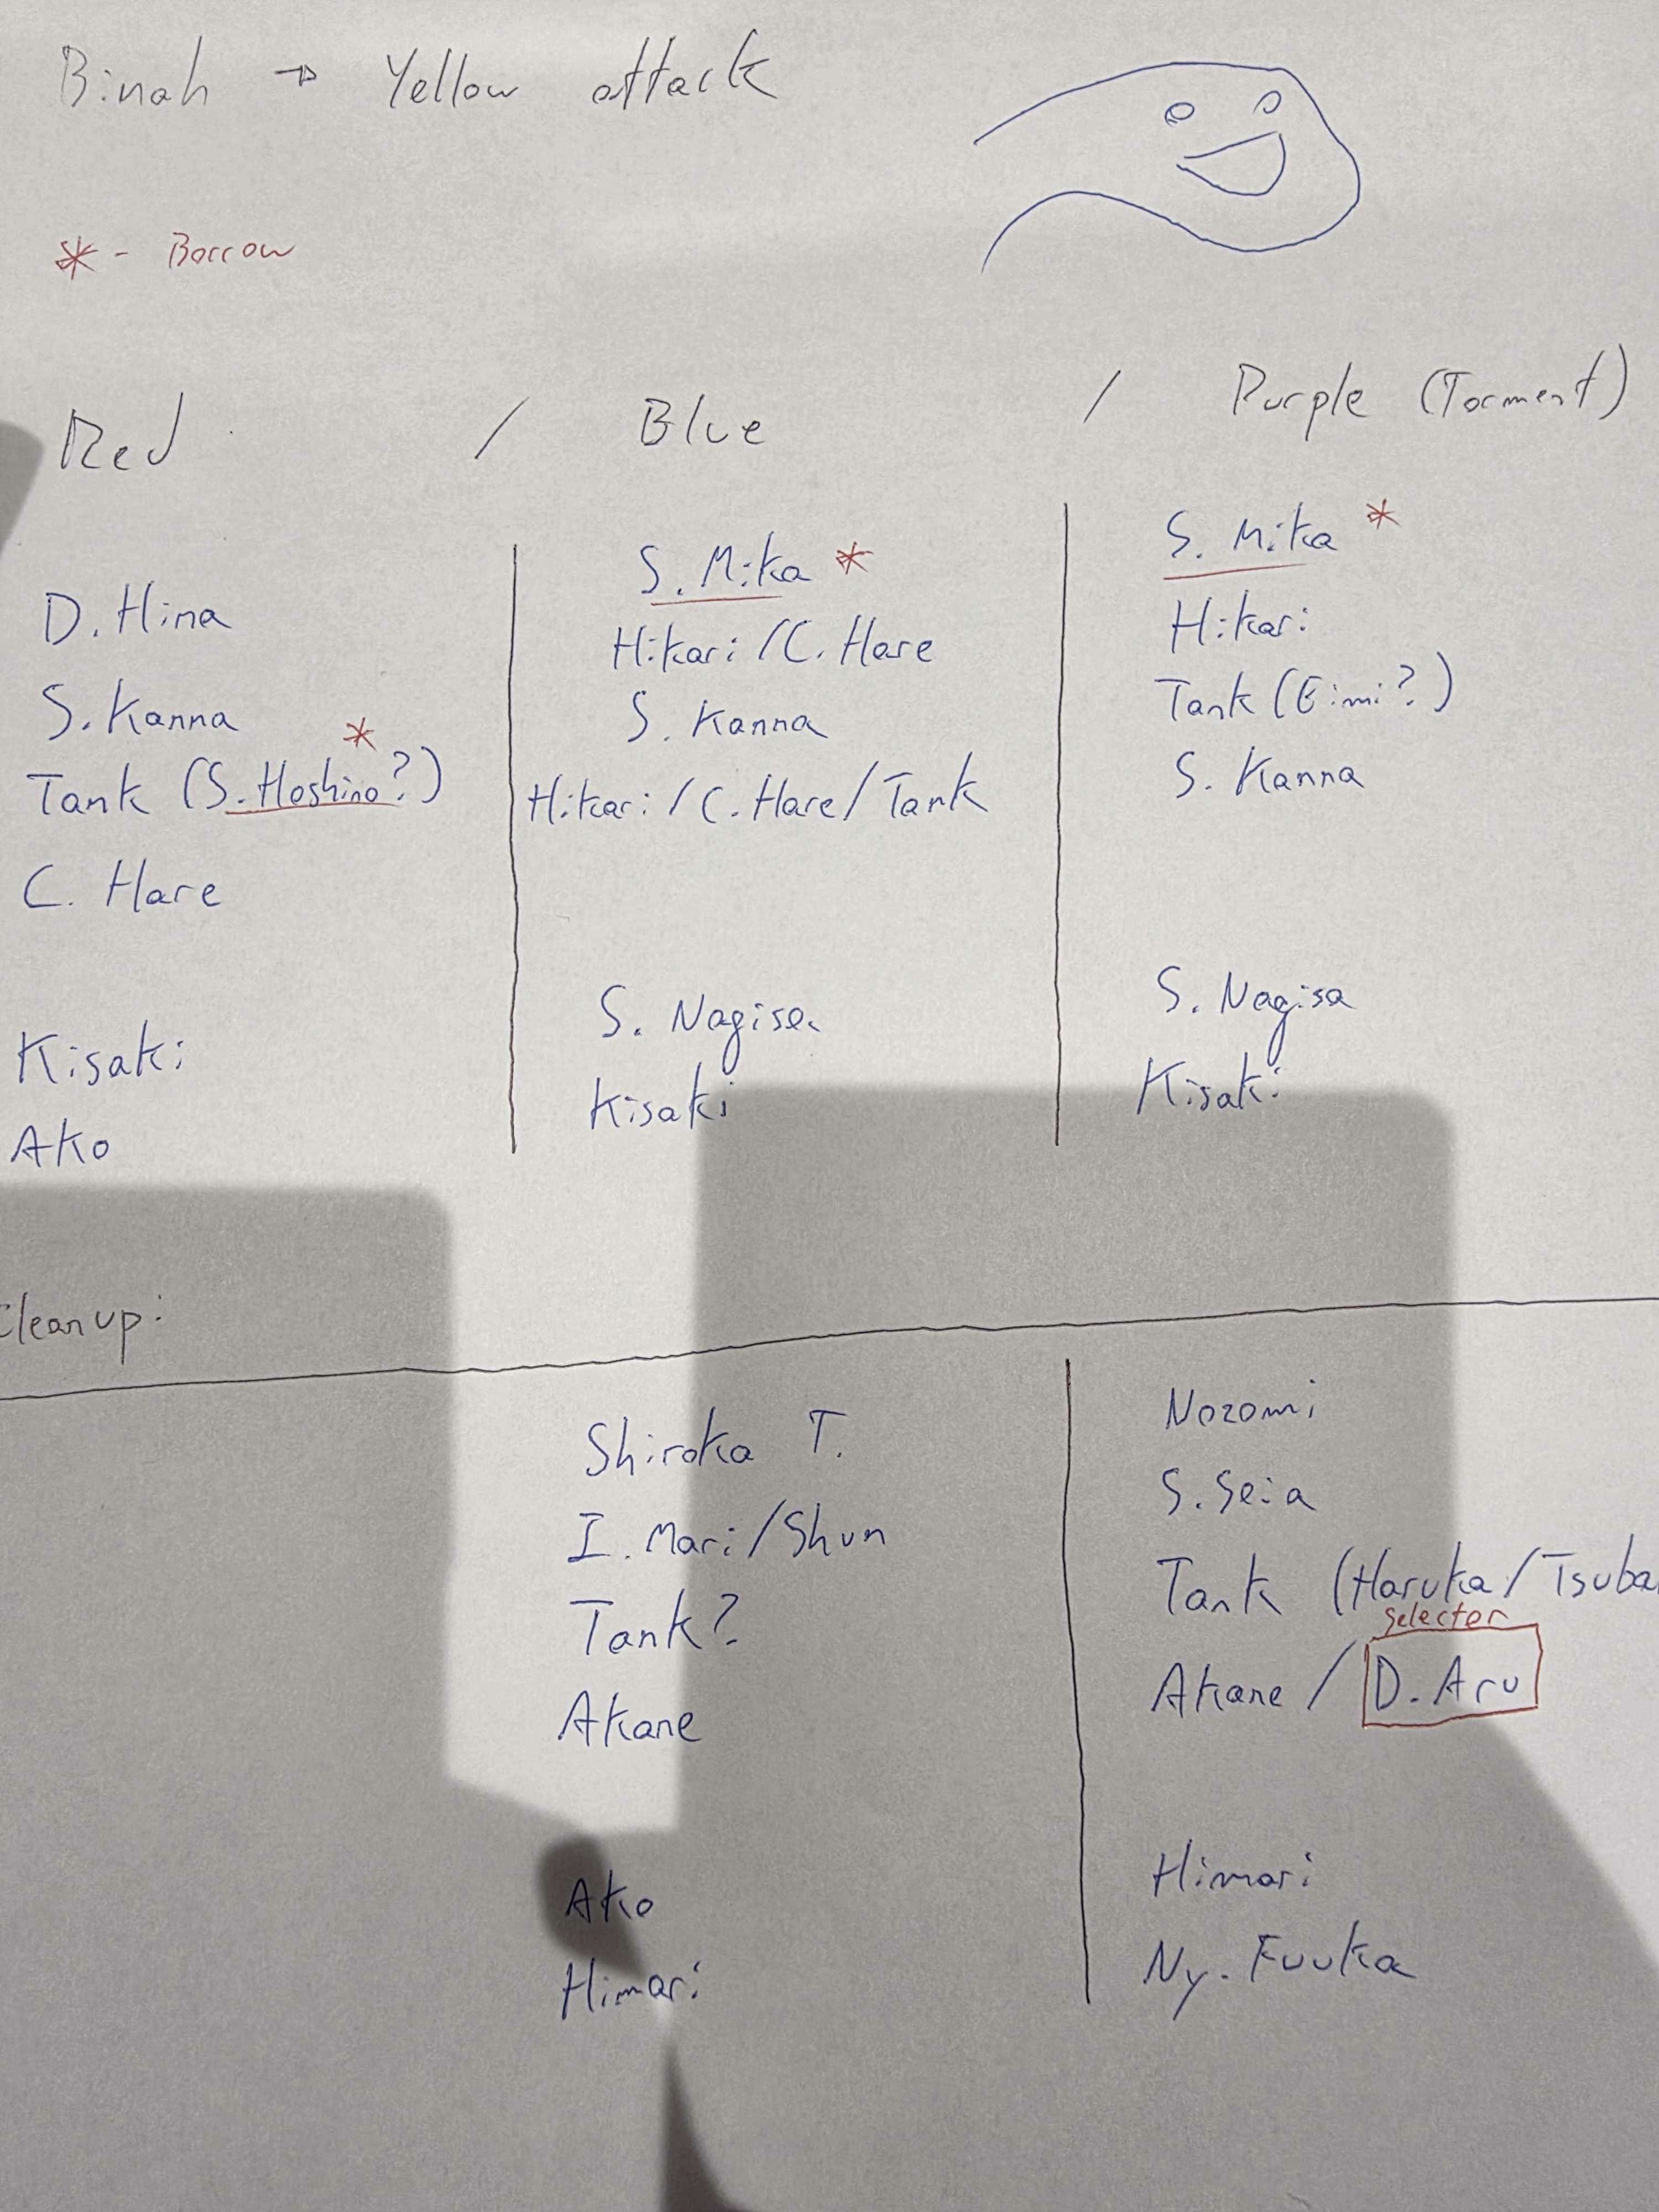 Binah → Yellow attack
* - Borrow
Red / Blue / Purple (Torment)
D. Hina
S. Kanna
*
Tank (S. Hoshino?)
C. Hare
Kisaki
Ako
S. Mika *
Hikari / C. Hare
S. Kanna
Hikari / C. Hare / Tank
S. Nagisa
Kisaki
S. Mika *
Hikari
Tank (Eimi?)
S. Kanna
S. Nagisa
Kisaki
Cleanup:
Shiroko T.
I. Mari / Shun
Tank?
Akane
Ako
Himari
Nozomi
S. Seia
Tank (Haruka / Tsuba
selector
Akane / D. Aru
Himari
Ny. Fuuka